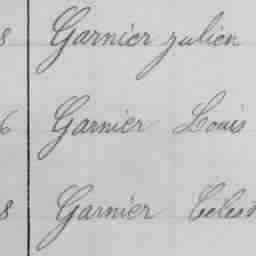 8 Garnier Julien
6 Garnier Louis
8 Garnier Céles